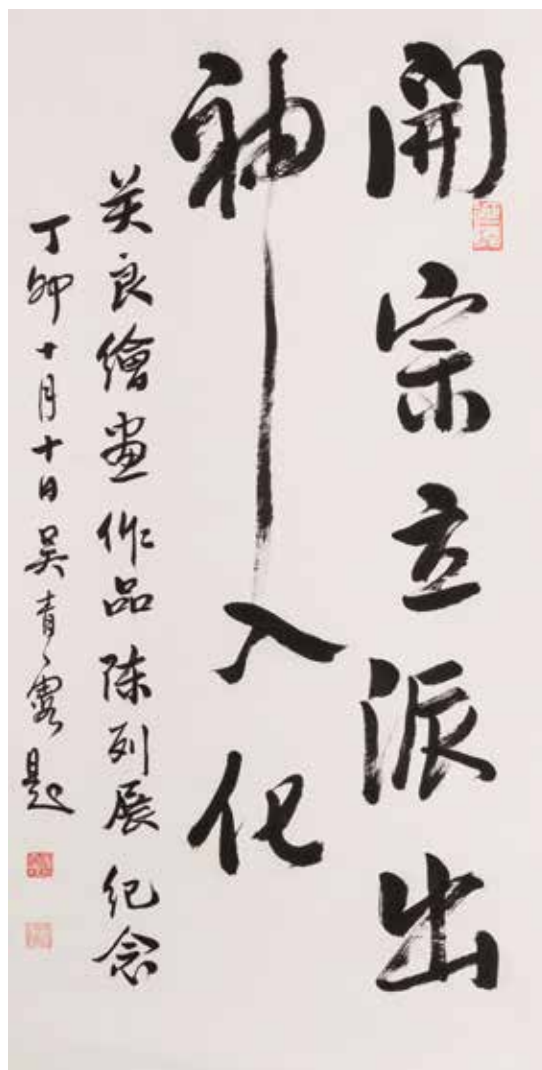 開宗立派出
神入化
关良繪畫作品陈列展 纪念
丁卯十月十日吴青霞题